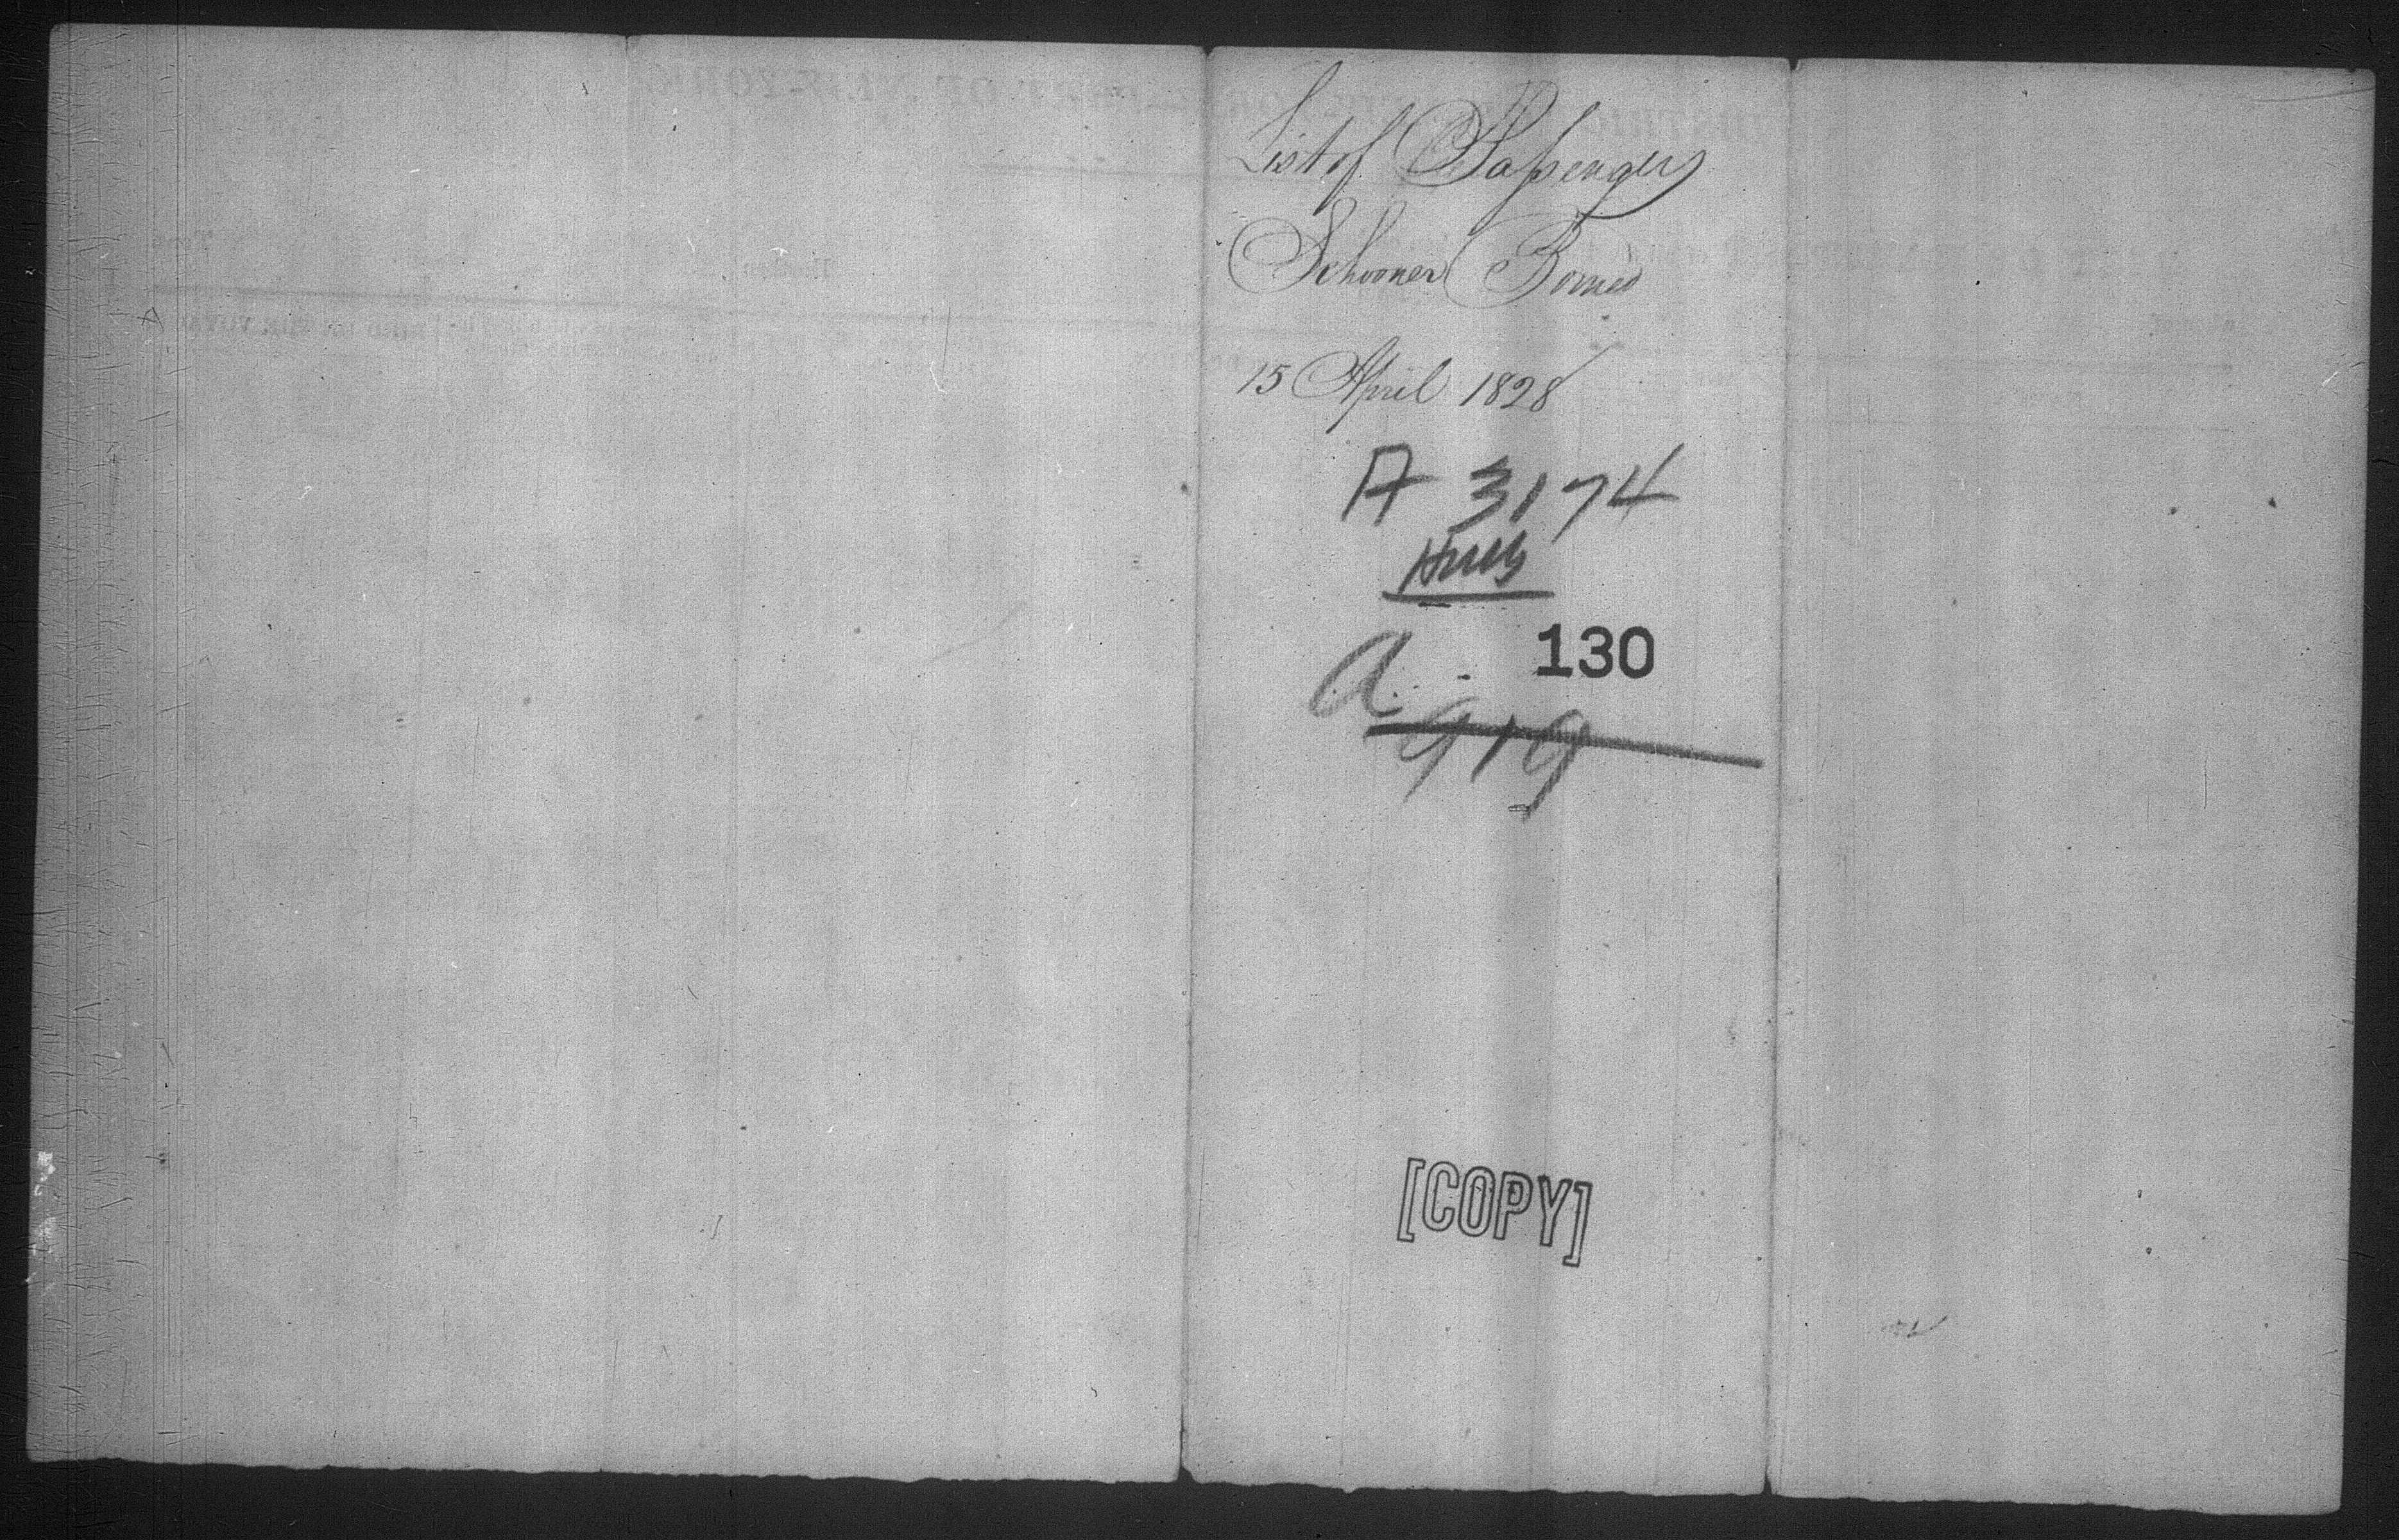 List of Passengers
Schooner Borneo
15 April 1828
A 3174
130
A.
919
[COPY]